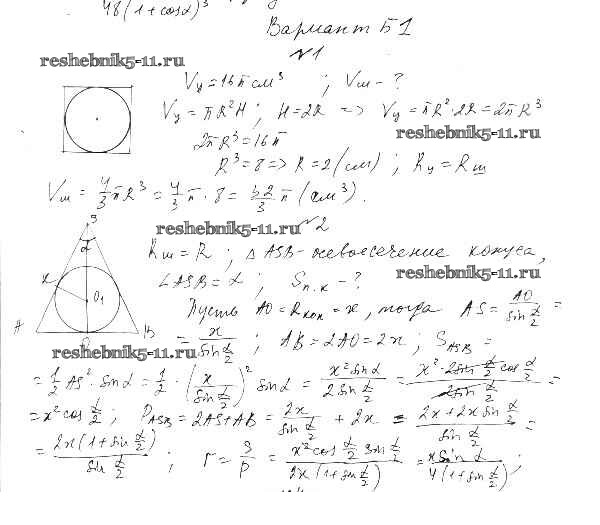 48(1+cosα)³
Вариант Б1
№1
reshebnik5-11.ru
Vц = 16π см³ ; Vш - ?
Vц = πR²H ; H = 2R => Vц = πR²·2R = 2πR³
reshebnik5-11.ru
2πR³ = 16π
R³ = 8 => R = 2 (см) ; Rц = Rш
Vш = 4/3 πR³ = 4/3 π · 8 = 32/3 π (см³).
reshebnik5-11.ru
№2
S
α
K
O₁
A
B
O
Rш = R ; Δ ASB - осевое сечение конуса,
reshebnik5-11.ru
∠ASB = α ; Sп.к - ?
Пусть AO = Rкон = x, тогда AS = AO/sin α/2 =
= x/sin α/2 ; AB = 2AO = 2x , S_ASB =
reshebnik5-11.ru
= 1/2 AS² · sin α = 1/2 · (x/sin α/2)² sin α = x² sin α/2 sin α/2 = x² · 2 sin α/2 cos α/2 / 2 sin α/2 =
= x² cos α/2 ; P_ASB = 2AS + AB = 2x/sin α/2 + 2x = 2x + 2x sin α/2 / sin α/2 =
= 2x(1 + sin α/2)/sin α/2 ; r = S/p = x² cos α/2 sin α/2 / 2x(1 + sin α/2) = x sin α / 4(1 + sin α/2) ;